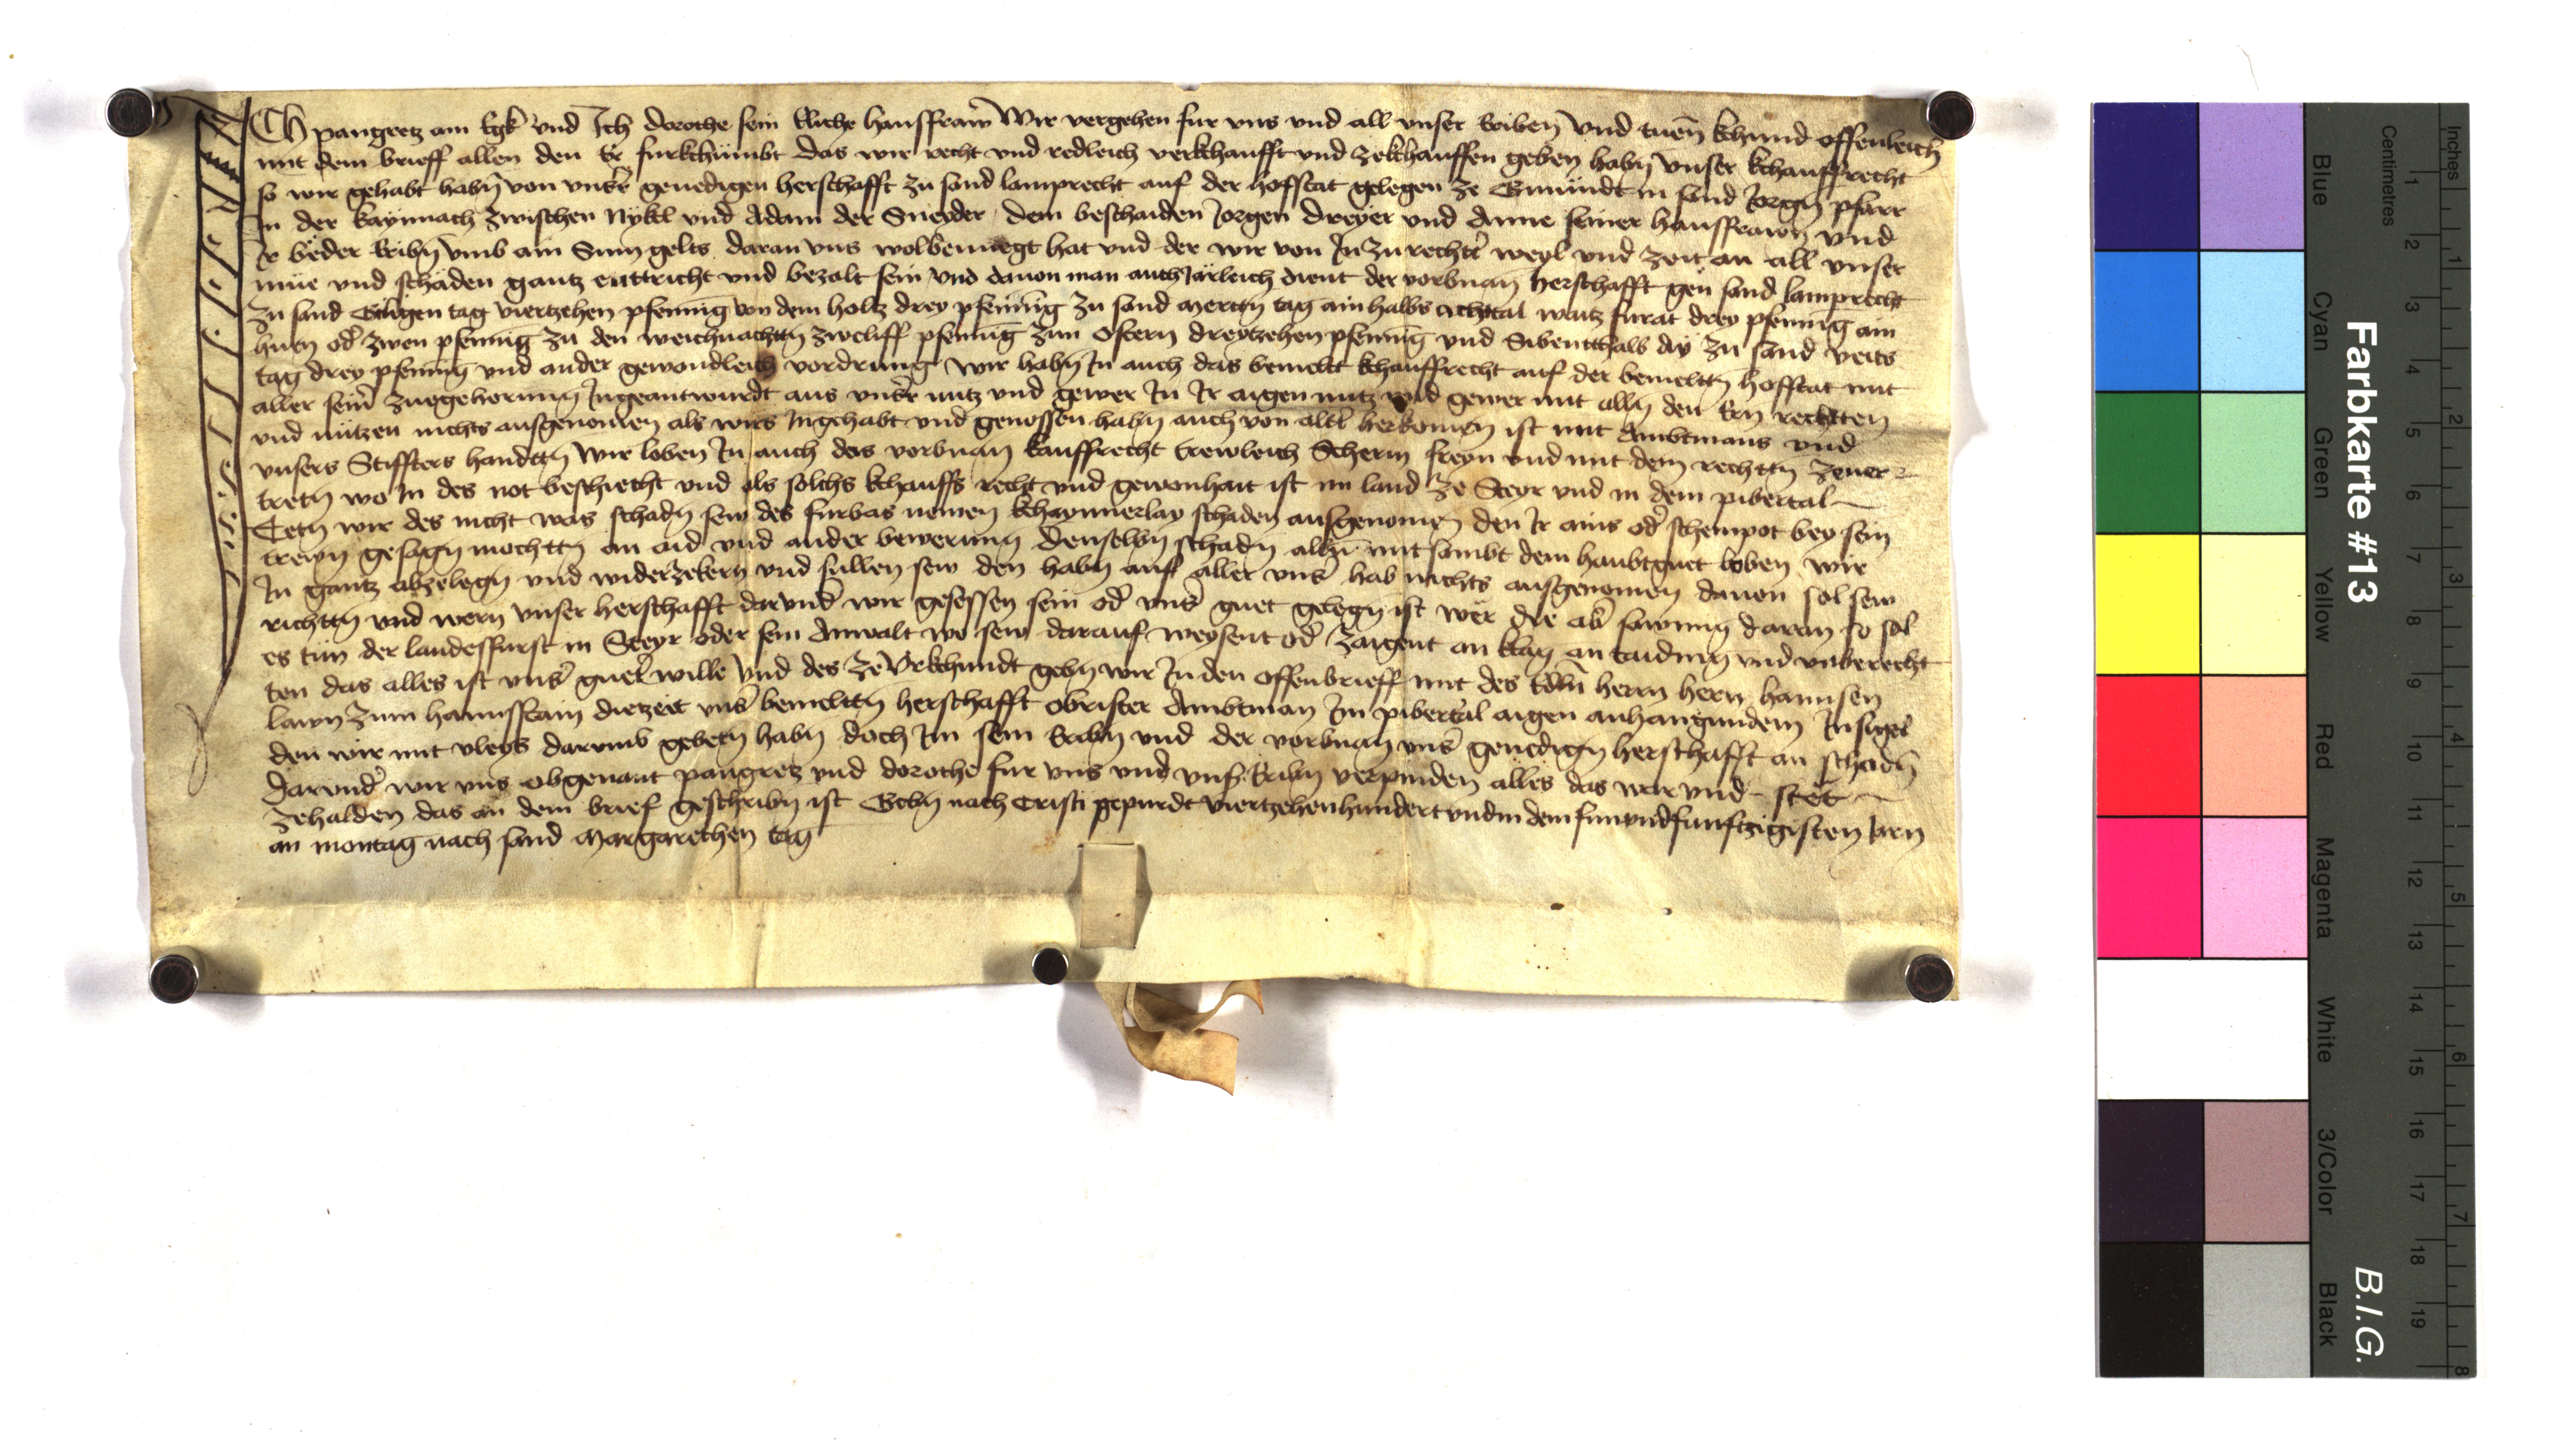 Ich pangretz am Egk und Ich dorothe sein Eliche hausfraw Wir vergehen fur uns und all unser Eriben Und tuen khund offenleich
mit dem brieff allen den Er furkhumbt das wir recht und redleich verkhaufft und zekhauffen geben habn Unser khauffrecht
so wir gehabt habn von unsr genedigen herschafft zu sand lamprecht auf der hofstat gelegen ze Gmundt in sand Jorgn pfarr
in der kaynnach zwischen Nykl und Adam der Sneyder dem beschaiden Jorgen dreyer und Anne seiner hausfrawn Und
Ir beder Eribn Umb ain Sum gelts daran uns wolbenuegt hat und der wir von In zu rechtr weyl und zeit an all unser
mue und schaden gantz enttricht und bezalt sein Und dauon man auch Jarleich dient der vorbnan herschafft gen sand lamprecht
zu sand Giligen tag viertzehen pfennig von dem holtz drey pfennig zu sand Mertn tag ain halbs achttal waitz furat drey pfennig ain
huen od zwen pfennig zu den weichnachttn zweliff pfennig zun Ostern dreytzehen pfennig und Sibentthalb ay zu sand veits
tag drey pfennig und ander gewondleich vordrung Wir habn In auch das bemelt khauffrecht auf der bemeltn hofstat mit
aller seinr zuegehorung Ingeantwurdt aus unsr nutz und gewer In Ir aigen nutz und gewer mit alln den Ern rechtten
und nutzen nichts ausgenomen als wirs Inngehabt und genossen habn auch von altr herkomen ist mit Ambtmans und
unsers Stiffters handttn Wir loben In auch das vorbnan kauffrecht trewleich Scherm freyn und mit dem rechttn zeuer
tretn wo In des not beschiecht und als solchs khauffs recht und gewonhait ist im land ze Steyr und in dem pibertal
Tetn wir des nicht was schadn sew des furbas nemen khaynnerlay schaden ausgenomen den Ir ains od schempot bey sein
trewn gesagn mochttn an aid und ander bewerung denselbn schadn alln mitsambt dem haubtguet loben wir
In gantz abzelegn und widerzekern und sullen sew den habn auf aller unsr hab nichts ausgenomen dauon sol sew
richttn und wern Unser herschafft darund wir gesessen sein od unsr guet gelegn ist wer die ab sawmig daran so sol
es tun der landesfurst in Steyr oder sein Anwalt wo sew darauf weysent od zaigent an klag an taiding und unberecht
ten das alles ist unsr guetr wille Und des ze Urkhundt gebn wir In den offenbrieff mit des Edln herrn hern hannsen
lawn zum haunstain dietzeit unsr bemelttn herschafft obrister Ambtman Im pibertal aigen anhangundem Insigel
den wir mit vleys darumb gebetn habn doch Im sein Eribn und der vorbnan unsr genedign herschafft an schadn
darund wir uns obgenant pangretz und dorothe fur uns und unsr Eribn verpinden alles das war und stet
zehalden das an dem brief geschribn ist Gebn nach Cristi gepurde viertzehenhundert und in dem funvndfunftzigisten Jarn
an montag nach sand Margarethen tag
Farbkarte #13
B.I.G.
Inches
Centimetres
Blue
Cyan
Green
Yellow
Red
Magenta
White
3/Color
Black
1 2 3 4 5 6 7 8 9 10 11 12 13 14 15 16 17 18 19
1 2 3 4 5 6 7 8